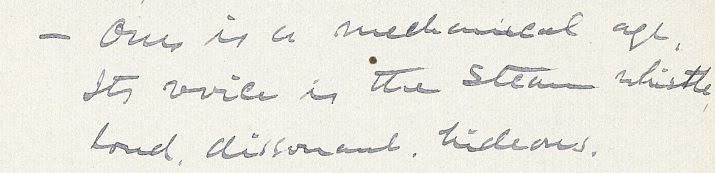 — Ours is a mechanical age.
Its voice is the Steam whistle,
loud, dissonant, hideous.